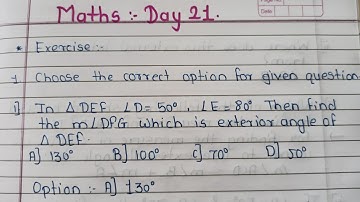 Maths :- Day 21.
Date
* Exercise :-
1 Choose the correct option for given question
i] In △ DEF ∠D = 50°, ∠E = 80° Then find
the m∠DPG which is exterior angle of
△ DEF.
A] 130° B] 100° C] 70° D] 50°
Option :- A] 130°